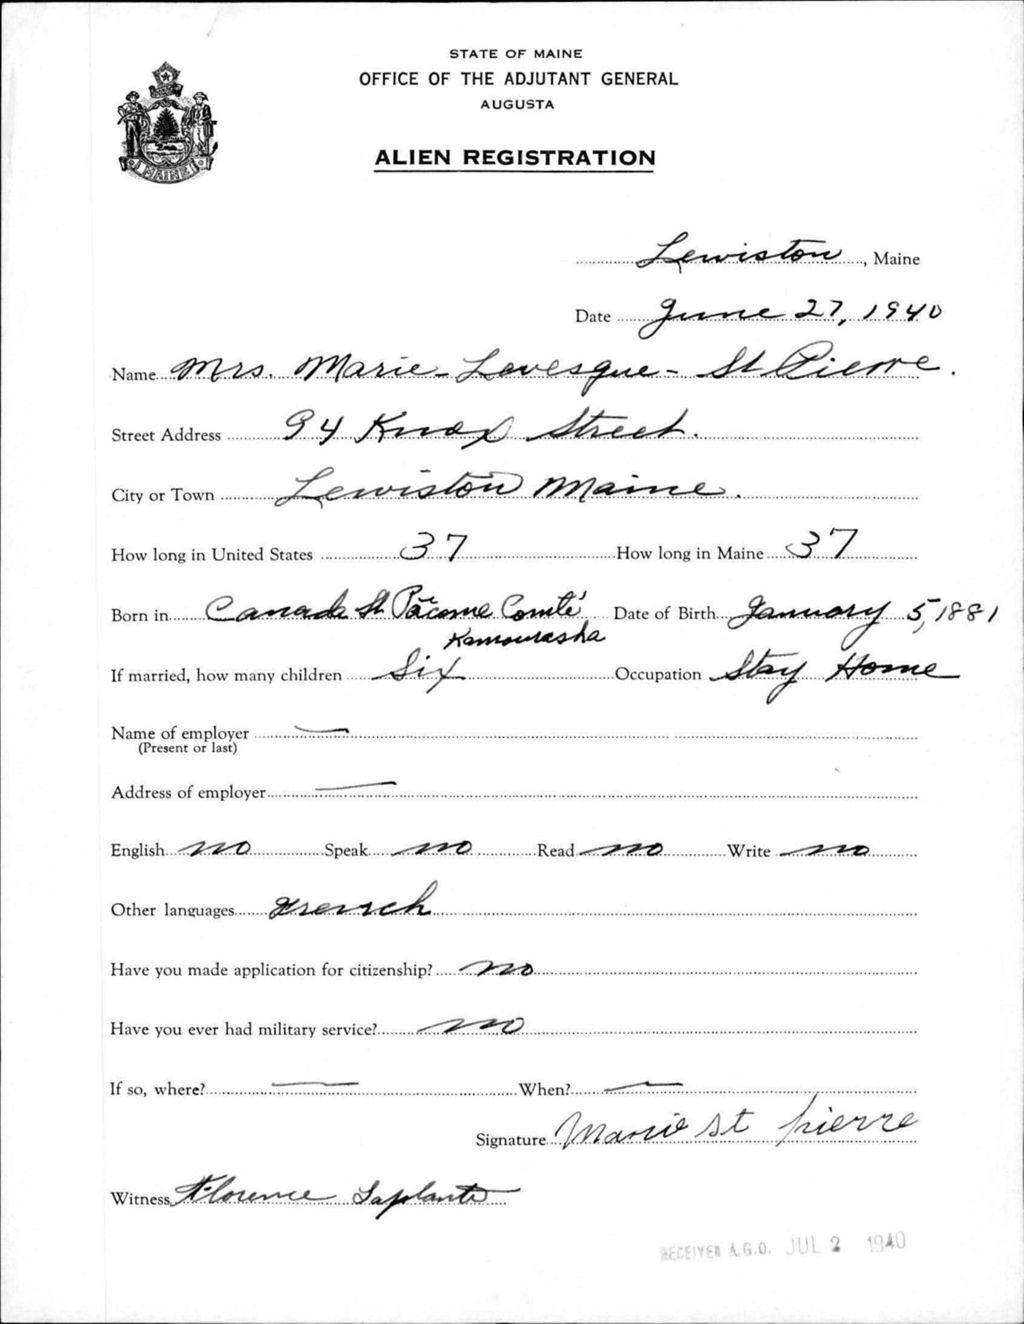 STATE OF MAINE
OFFICE OF THE ADJUTANT GENERAL
AUGUSTA
ALIEN REGISTRATION
MAINE
Lewiston, Maine
Date June 27, 1940
Name Mrs. Marie-Levesque-St Pierre.
Street Address 94 Knox Street.
City or Town Lewiston Maine.
How long in United States 37 How long in Maine 37
Born in Canada St Pâcome Comté Date of Birth January 5, 1881
Kamouraska
If married, how many children Six Occupation Stay Home
Name of employer —
(Present or last)
Address of employer —
English no Speak no Read no Write no
Other languages French
Have you made application for citizenship? no
Have you ever had military service? no
If so, where? — When? —
Signature Marie St Pierre
Witness Florence Laplante
RECEIVED A.G.O. JUL 2 1940